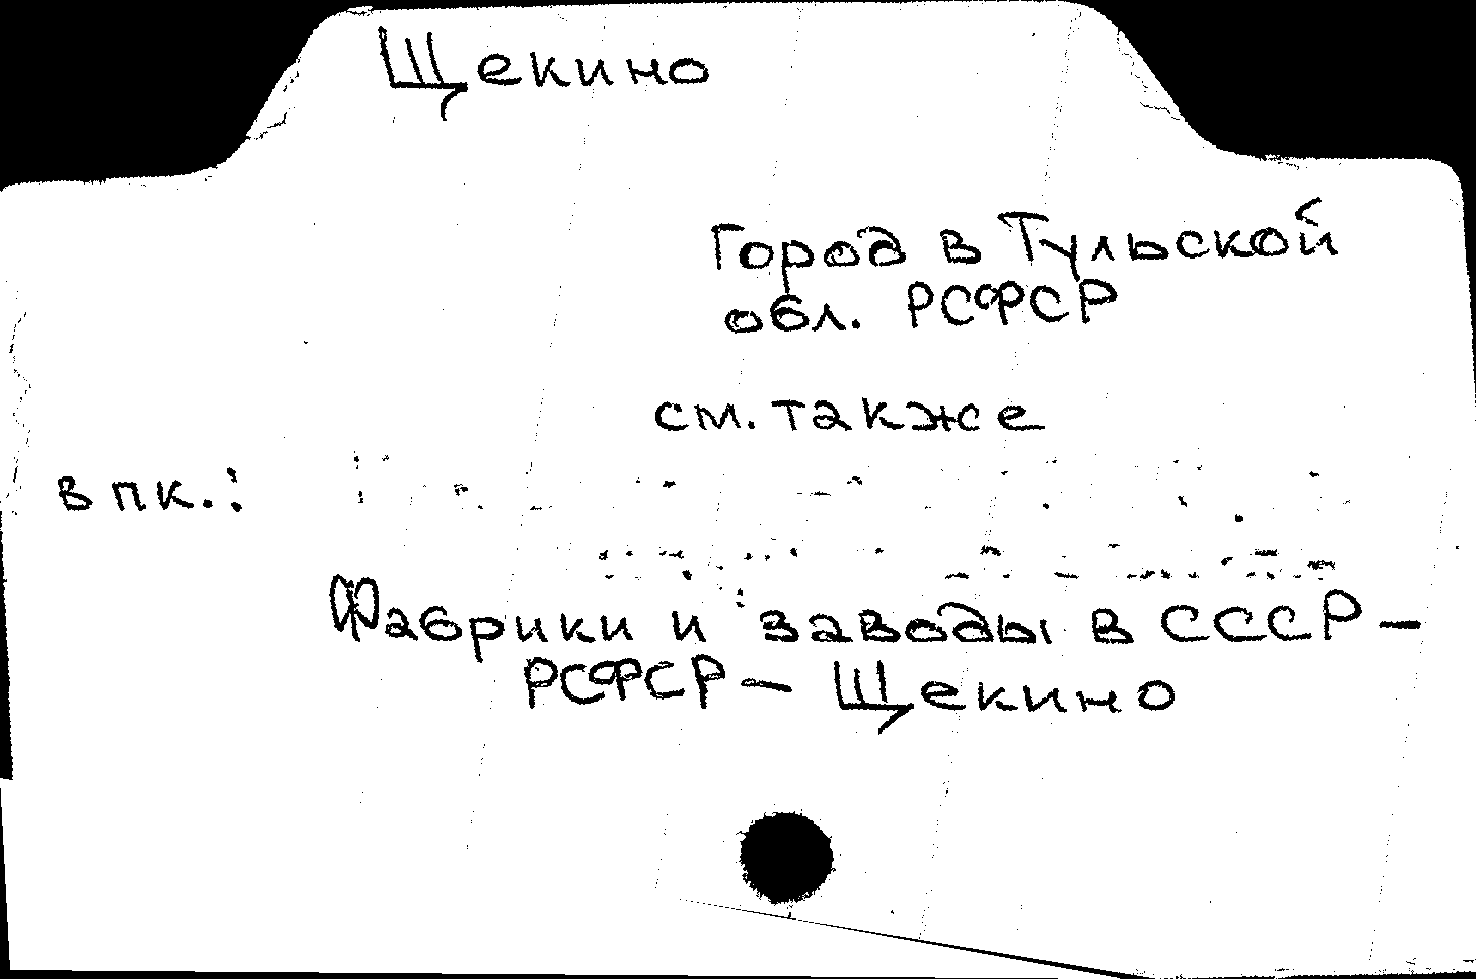 Щекино
Город в Тульской
обл. РСФСР
см. также
в пк.:
Фабрики и заводы в СССР –
РСФСР – Щекино